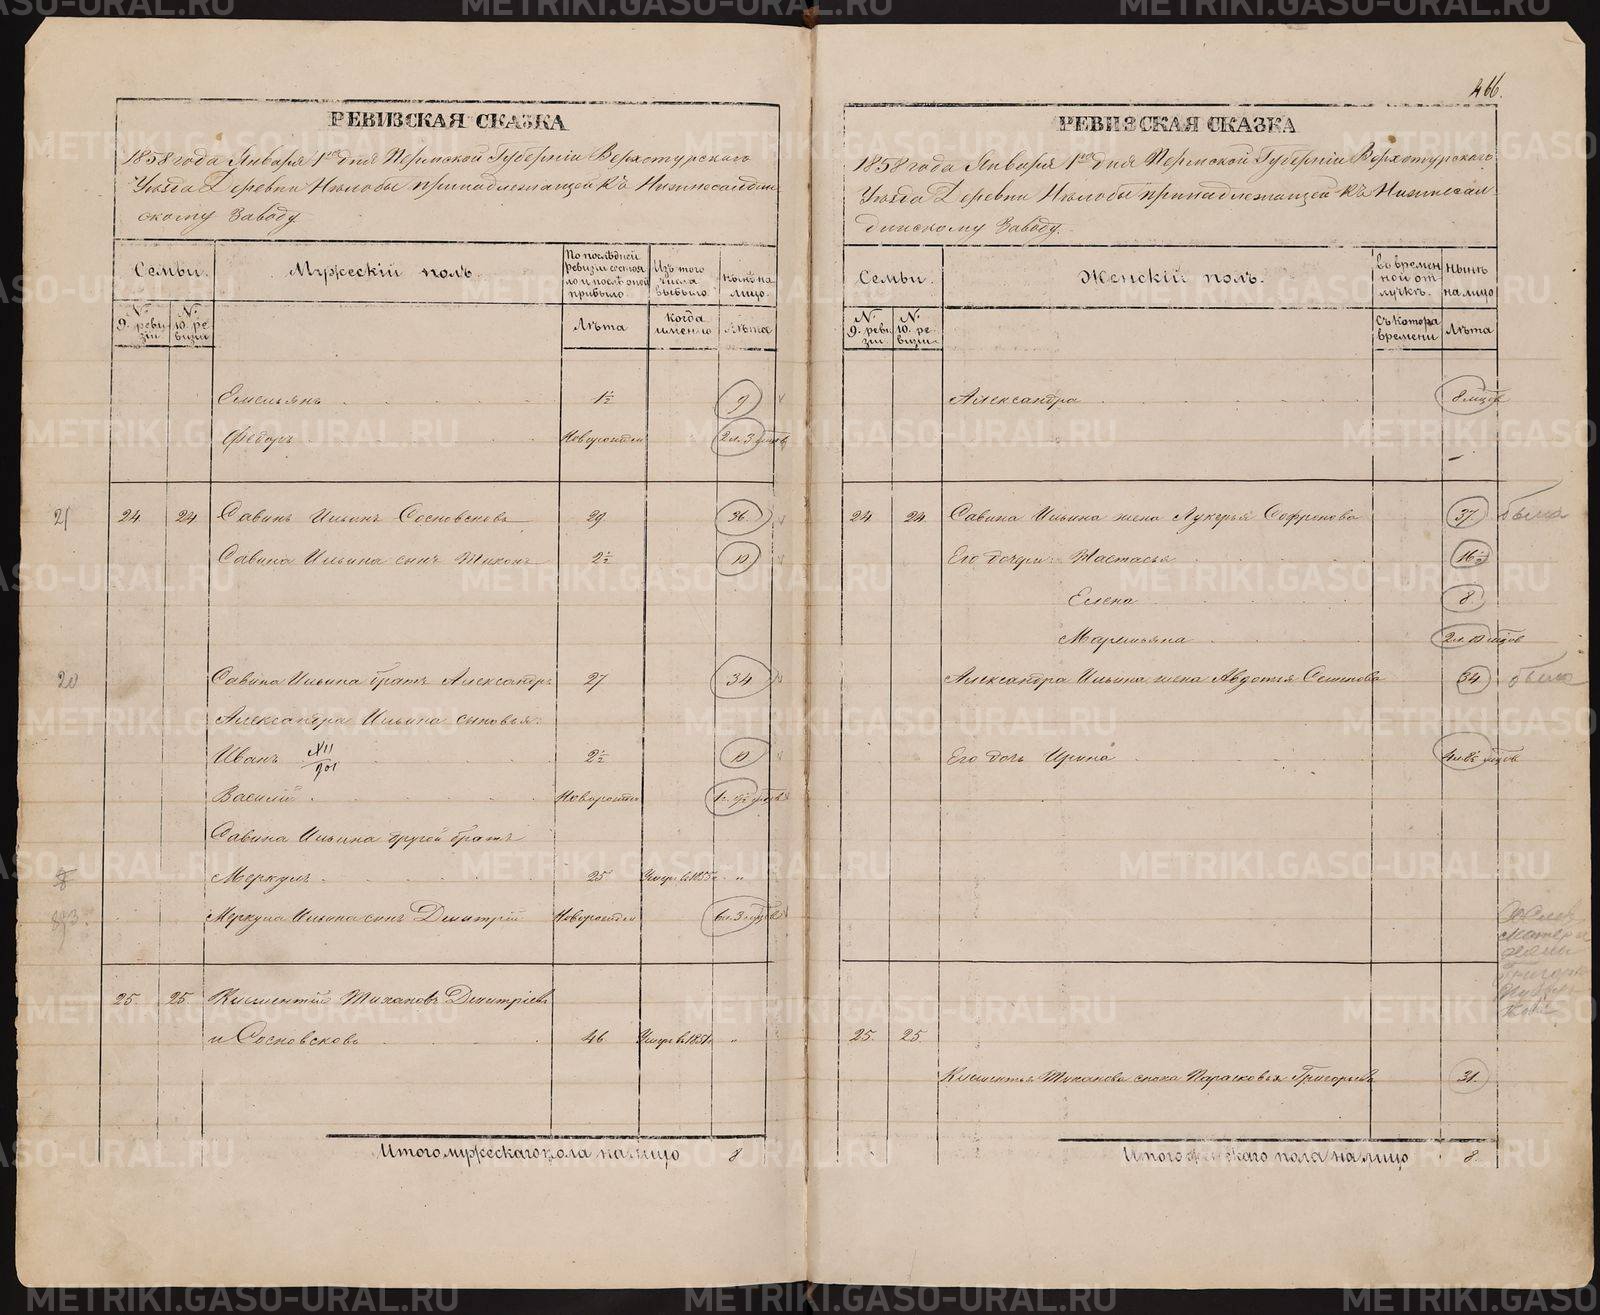 466.
РЕВИЗСКАЯ СКАЗКА
1858 года Января 1го дня Пермской Губерніи Верхотурскаго
Уѣзда Деревни Нѣлобы принадлежащей къ Нижнесалдин
скому Заводу
Семьи.
Мужескій полъ.
По послѣдней ревизіи состояло и послѣ оной прибыло.
Изъ того числа выбыло.
нынѣ на лицо.
№ 9. ревизіи
№ 10. ревизіи
Лѣта
когда именно
Лѣта
Емельянъ 1½ 9
Федоръ Новорожден 2 л. 3 мцов
21 24 24 Савинъ Ильинъ Сосновсковъ 29 36
Савина Ильина сынъ Тихонъ 2½ 10
20 Савина Ильина братъ Александръ 27 34
Александра Ильина сыновья:
Иванъ 2½ 10
Василій Новорожден
Савина Ильина другой братъ
Меркулъ 25 Умеръ въ 1855 г. "
Меркула Ильина сынъ Дмитрій Новорожден 6 л. 3 мцов
25. 25. Климентій Тихановъ Дмитріевъ
и Сосновсковъ 46 Умеръ въ 1851 г. "
Итого мужескаго пола на лицо 8
РЕВИЗСКАЯ СКАЗКА
1858 года Января 1го дня Пермской Губерніи Верхотурскаго
Уѣзда Деревни Нѣлобы принадлежащей къ Нижнесал
динскому Заводу.
Семьи.
Женскій полъ.
во временной отлучкѣ.
нынѣ на лицо
№ 9. ревизіи.
№ 10. ревизіи.
Съ котора времени
Лѣта
Александра 8 мцов
24 24. Савина Ильина жена Лукерья Софронова 37.
Его дочери: Настасья 16½
Елена 8.
Маремьяна 2 л. 10 мцов
Александра Ильина жена Авдотья Семенова 34
Его дочь Ирина
25. 25.
Климентья Тиханова сноха Парасковья Григорьева 31.
Итого женскаго пола на лицо 8.
METRIKI.GASO-URAL.RU